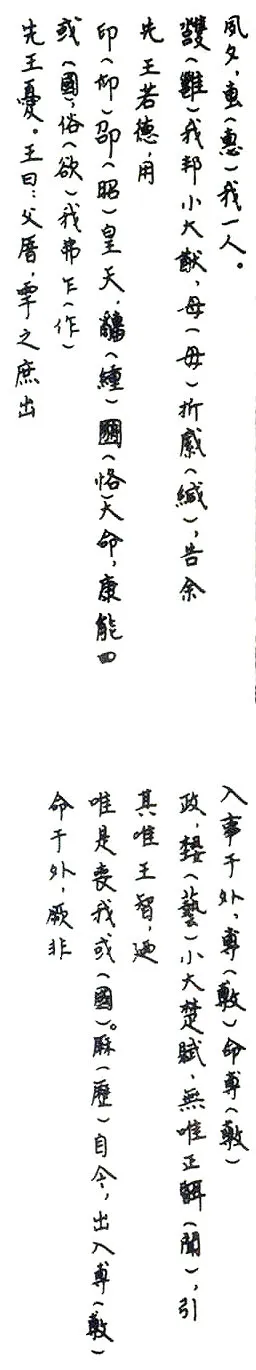 夙夕，叀（惠）我一人。
雝（雝）我邦小大猷，母（毋）折緘（緘），告余
先王若德，用
卬（仰）卲（昭）皇天，䌛（緟）圝（恪）大命，康能四
或（國），俗（欲）我弗乍（作）
先王憂。王曰：父厝，雩之庶出
入事于外，尃（敷）命尃（敷）
政，埶（藝）小大楚賦，無唯正䎽（聞），引
其唯王智，廼
唯是喪我或（國）。厤（歷）自今，出入尃（敷）
命于外，厥非